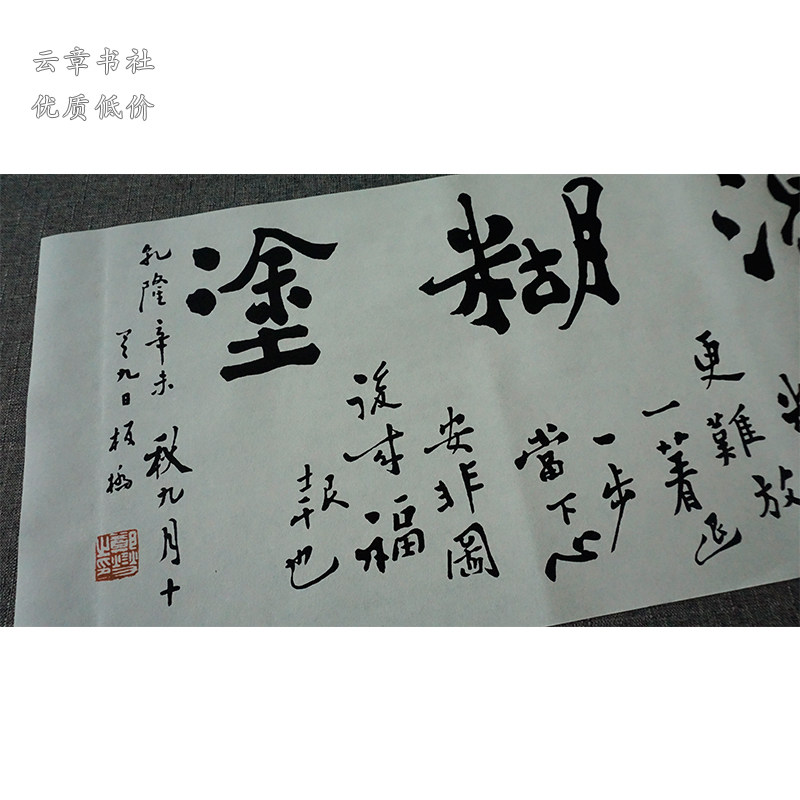 云章书社
优质低价
糊塗
更難放
一著退
一步
當下心
安非圖
後來福
報也
乾隆辛未秋九月十
九日板橋
鄭燮之印